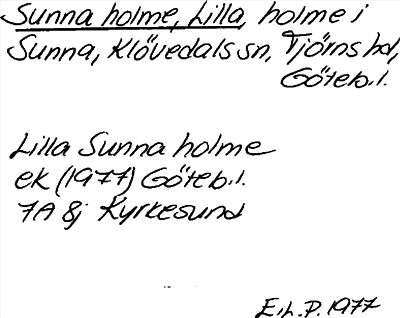 Sunna holme, Lilla, holme i
Sunna, Klövedals sn, Tjörns hd,
Göteb.l.
Lilla Sunna holme
ek (1977) Göteb.l.
7A 8j Kyrkesund
E.L.P. 1977